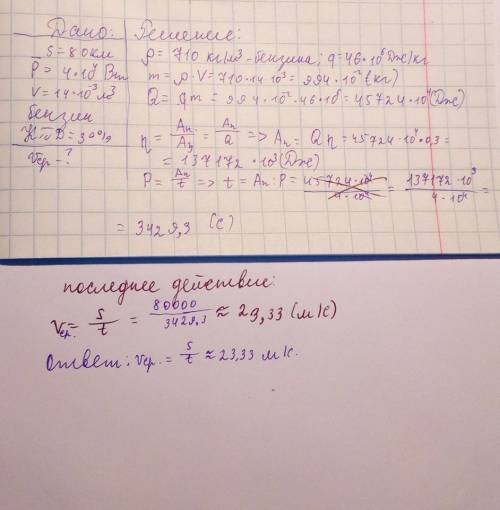 Дано:
S = 80 км
P = 4·10⁴ Вт
V = 14·10⁻³ м³
бензин
КПД = 30%
Vср - ?
Решение:
ρ = 710 кг/м³ - бензина; q = 46·10⁶ Дж/кг
m = ρ·V = 710·14·10⁻³ = 994·10⁻² (кг)
Q = qm = 994·10⁻²·46·10⁶ = 45724·10⁴ (Дж)
η = Aп/Aз = Aп/Q => Aп = Qη = 45724·10⁴·0,3 =
= 137172·10³ (Дж)
P = Aп/t => t = Aп : P = 45724·10⁴/4·10⁴ = 137172·10³/4·10⁴ =
= 3429,3 (с)
последнее действие:
Vср. = S/t = 80000/3429,3 ≈ 23,33 (м/с)
Ответ: Vср. = S/t ≈ 23,33 м/с.